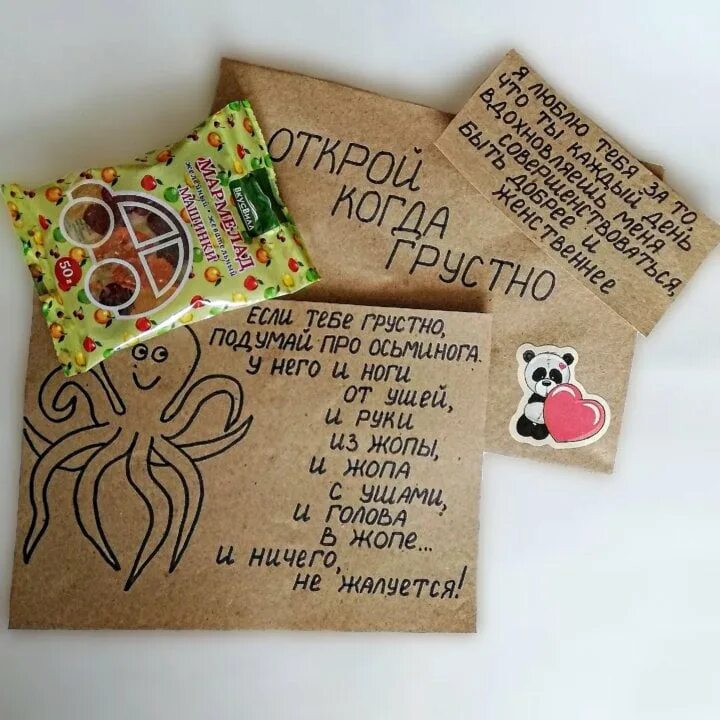 ОТКРОЙ
КОГДА
ГРУСТНО
Я ЛЮБЛЮ ТЕБЯ ЗА ТО,
ЧТО ТЫ КАЖДЫЙ ДЕНЬ
ВДОХНОВЛЯЕШЬ МЕНЯ
СОВЕРШЕНСТВОВАТЬСЯ,
БЫТЬ ДОБРЕЕ И
ЖЕНСТВЕННЕЕ
ВкусВилл
МАРМЕЛАД
желейный, жевательный
МАШИНКИ
50 г
ЕСЛИ ТЕБЕ ГРУСТНО,
ПОДУМАЙ ПРО ОСЬМИНОГА.
У НЕГО И НОГИ
ОТ УШЕЙ,
И РУКИ
ИЗ ЖОПЫ,
И ЖОПА
С УШАМИ,
И ГОЛОВА
В ЖОПЕ...
И НИЧЕГО,
НЕ ЖАЛУЕТСЯ!